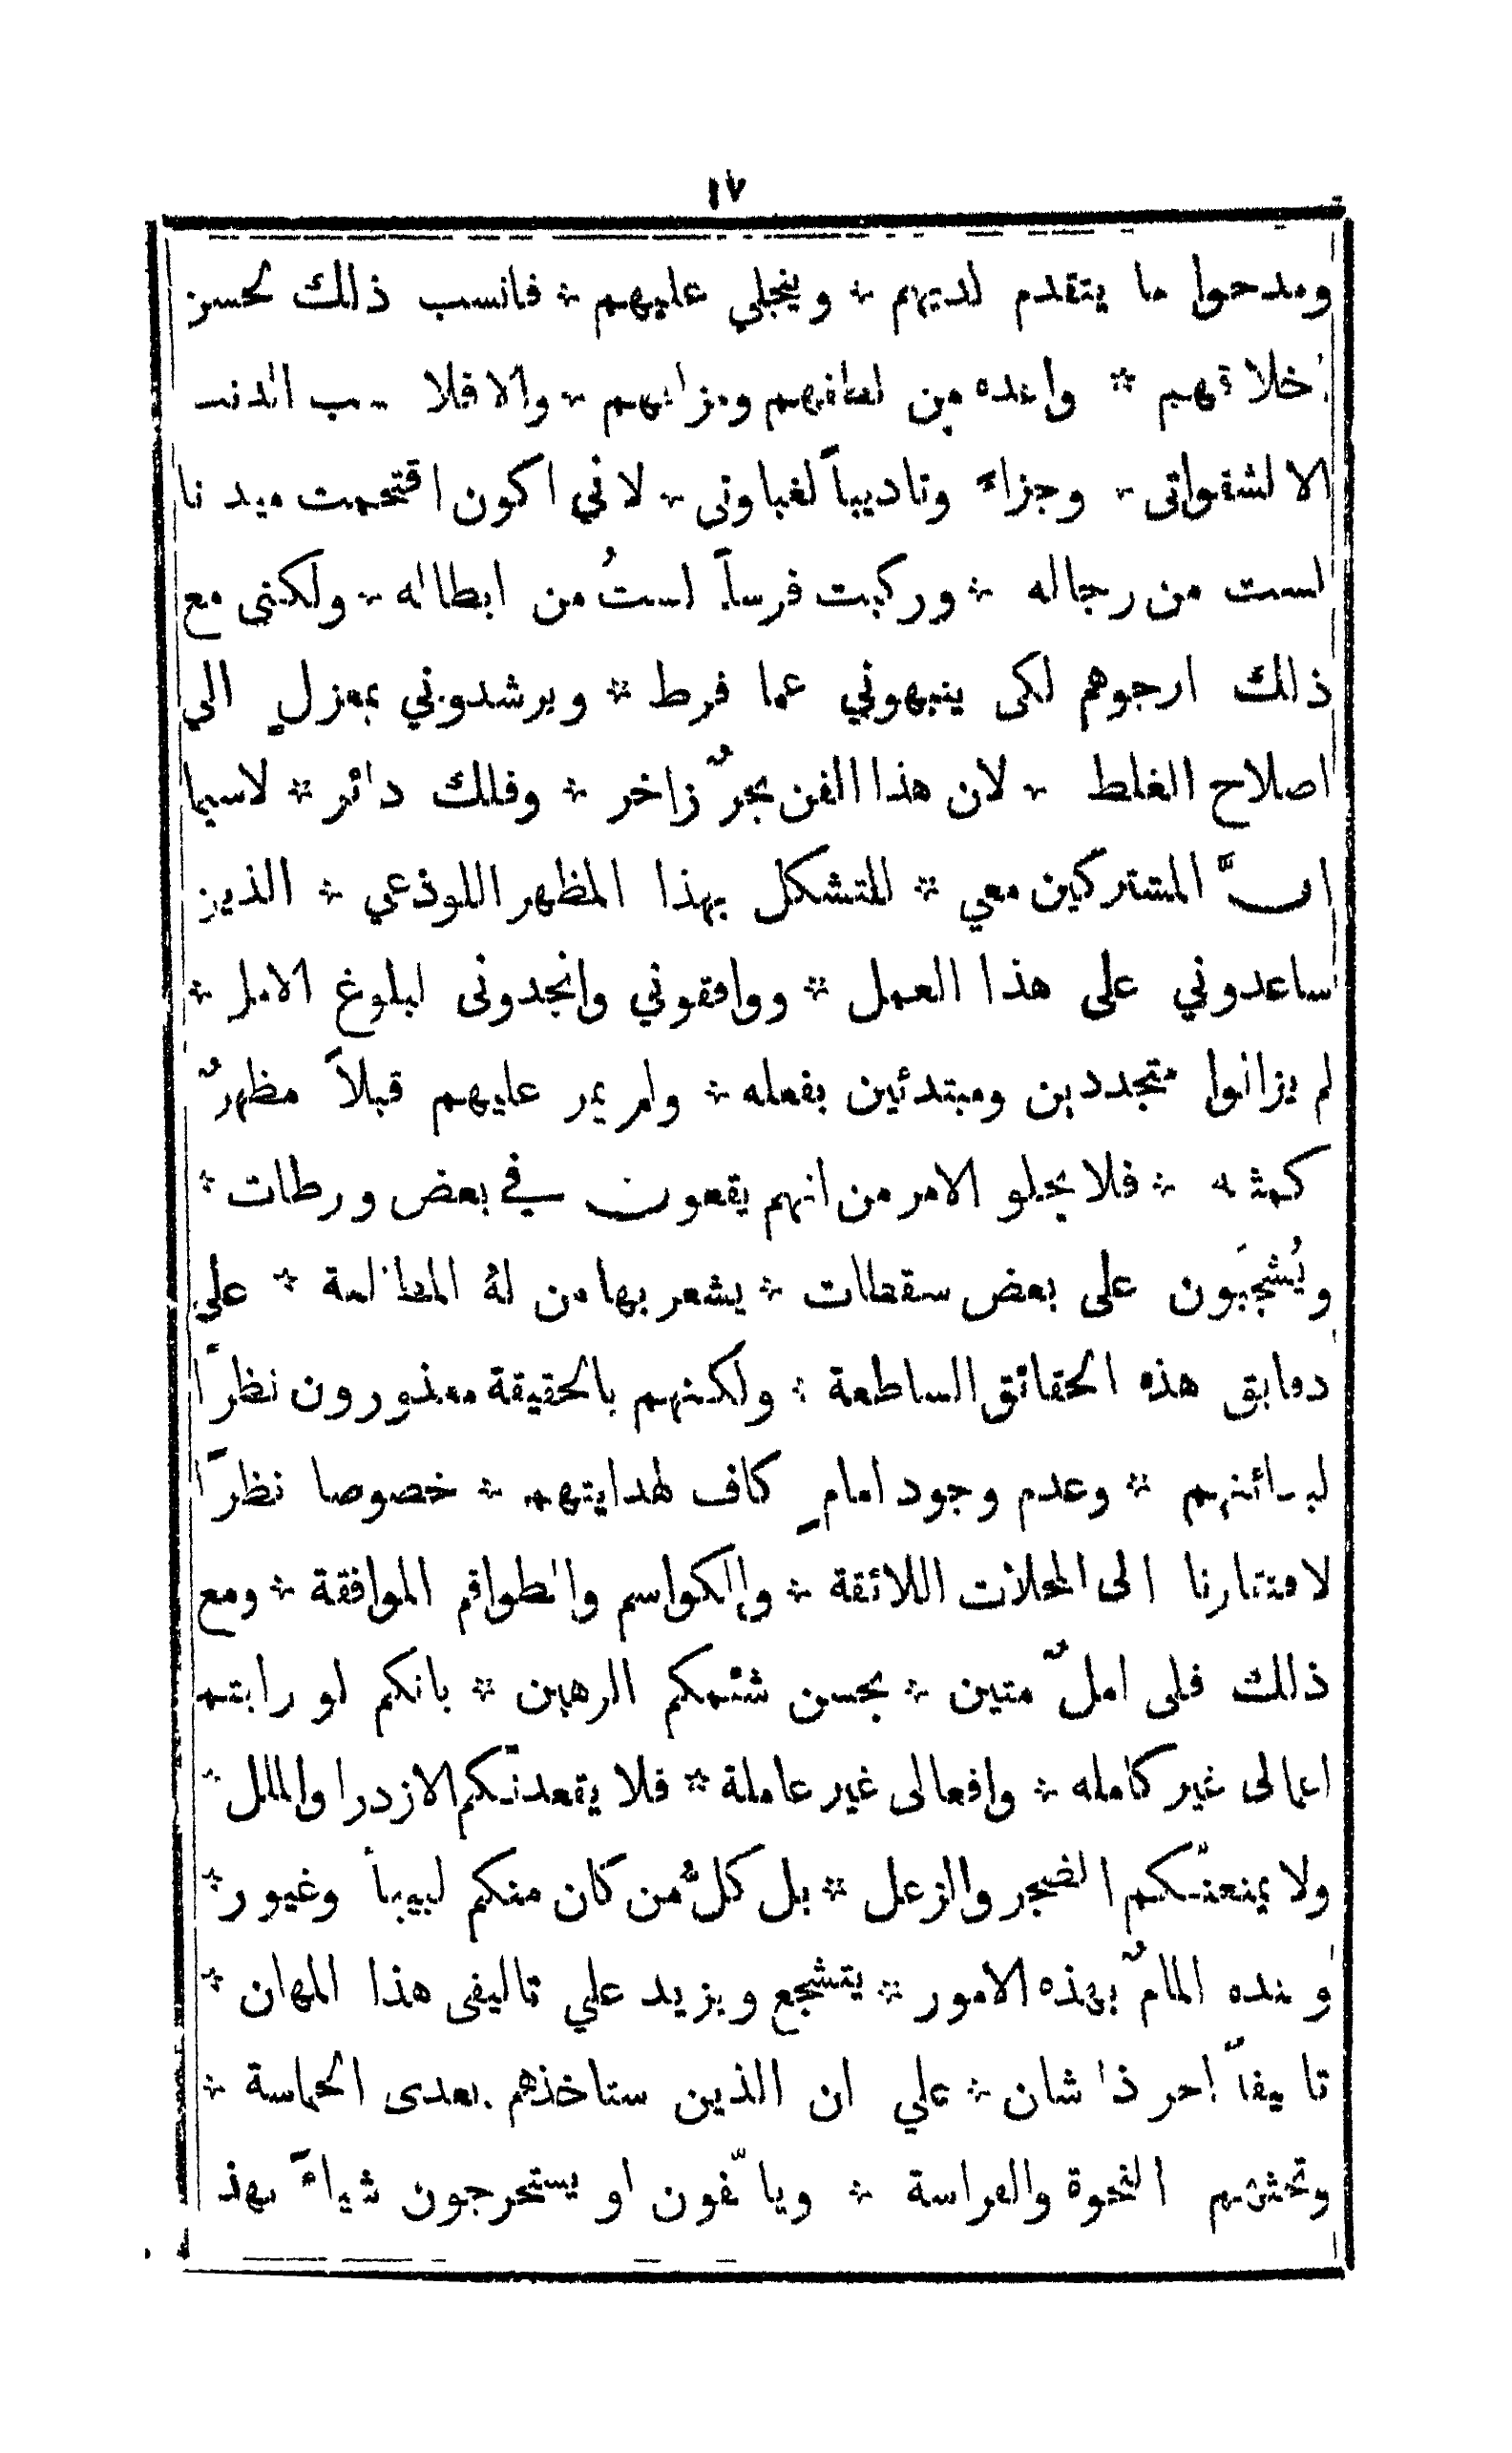 ١٧
ومدحوا ما يتقدم لديهم * وينجلي عليهم * فانسب ذلك لحسن
اخلاقهم * واعده من لطافهم ومزاياهم * والا فلا الذنب
الا لشقواتى * وجزاءً وتاديباً لغباوتى * لاني اكون اقتحمت ميدانا
لست من رجاله * وركبت فرساً لستُ من ابطاله * ولكننى مع
ذلك ارجوهم لكى ينبهوني عما فرط * ويرشدوني بمعزلٍ الى
اصلاح الغلط * لان هذا الفن بحرٌ زاخر * وفلك دائر * لاسيما
انَّ المشتركين معي * للتشكل بهذا المظهر اللوذعي * الذين
ساعدوني على هذا العمل * ووافقوني وانجدونى لبلوغ الامل *
لم يزالوا متجددين ومبتدئين بفعله * ولم يمر عليهم قبلاً مظهرٌ
كمثله * فلا يخلو الامر من انهم يقعون في بعض ورطات *
ويُشجَبون على بعض سقطات * يشعر بها من لهُ المطالعة * علي
دقايق هذه الحقائق الساطعة * ولكنهم بالحقيقة معذورون نظرًا
لبدائتهم * وعدم وجود امامٍ كاف لهدايتهم * خصوصا نظرًا
لافتقارنا الى المحلات اللائقة * والكواسم والطواقم الموافقة * ومع
ذلك فلى املٌ متين * بحسن شئمكم الرهين * بانكم لو رايتم
اعمالى غير كامله * وافعالى غير عاملة * فلا يقعدنّكم الازدرا والملل *
ولا يمنعنّكم الضجر والزعل * بل كلُّ من كان منكم لبيباً وغيور *
وعنده المامٌ بهذه الامور * يتشجع ويزيد علي تاليفى هذا المهان *
تاليفاً اخر ذا شان * علي ان الذين ستاخذهم بعدى الحماسة *
وتحثهم النخوة والفراسة * ويالّفون او يستخرجون شياءً بهذا